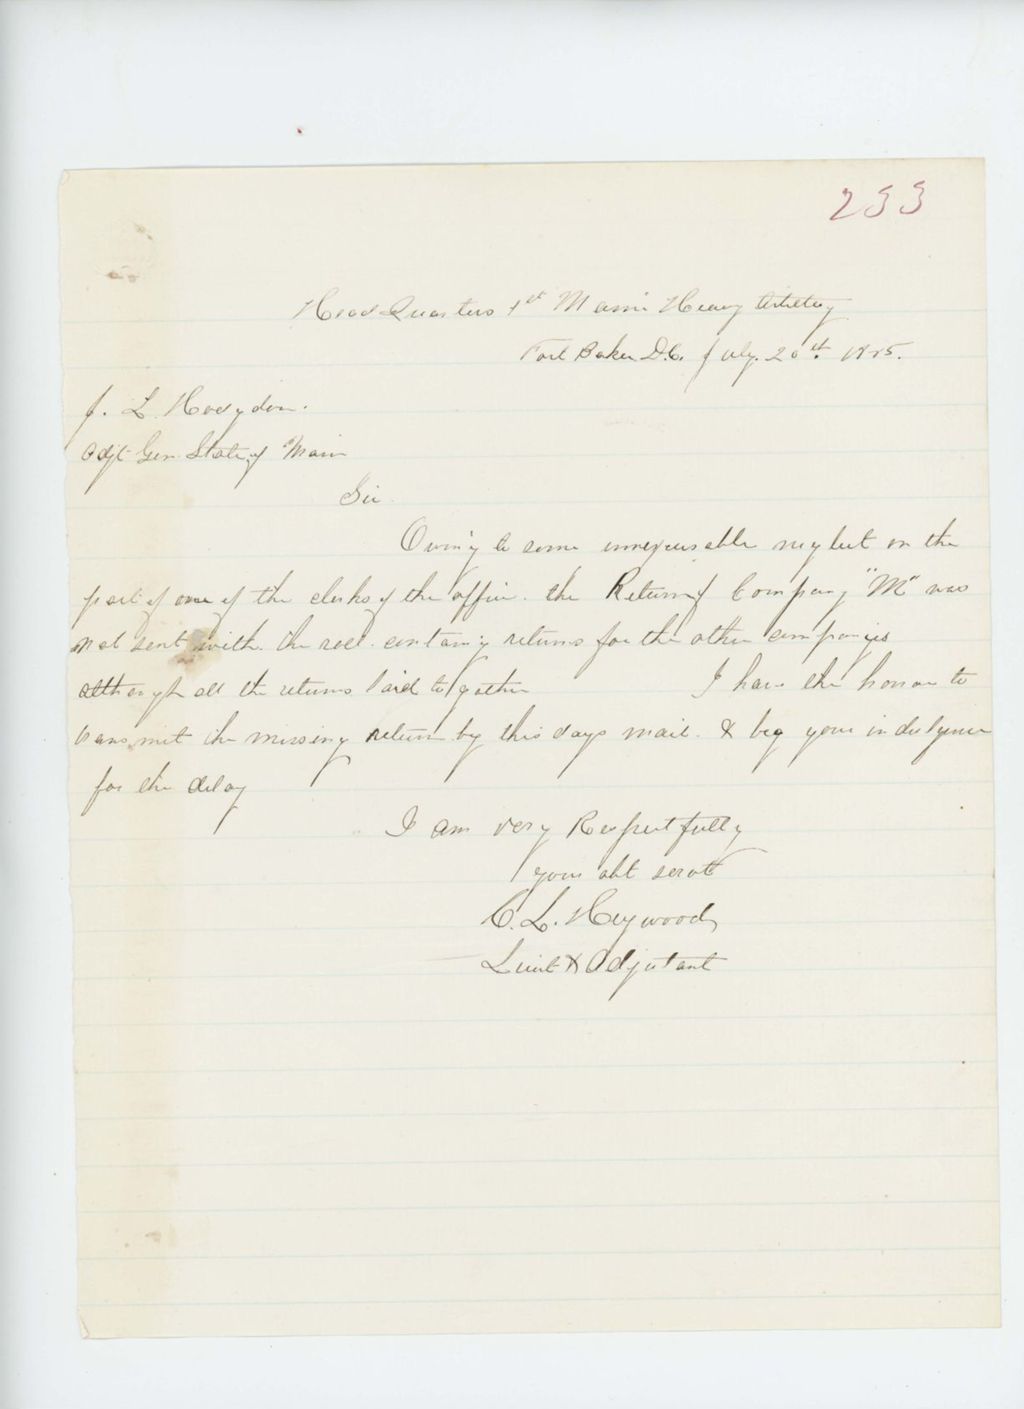 233
Head Quarters 1st Maine Heavy Artillery
Fort Baker D.C. July. 20th. 1865.
J. L. Hodgdon.
Adjt Gen State of Maine
Sir
Owing to some inexcusable neglect on the
part of one of the clerks of the office. the Return of Company "M" was
not sent with. the roll containg returns for the other companies
although all the returns laid together I have the honor to
transmit the missing return by this days mail. & beg your indulgence
for the delay
I am very Respectfully
your obt servt
C. L. Heywood,
Lieut & Adjutant